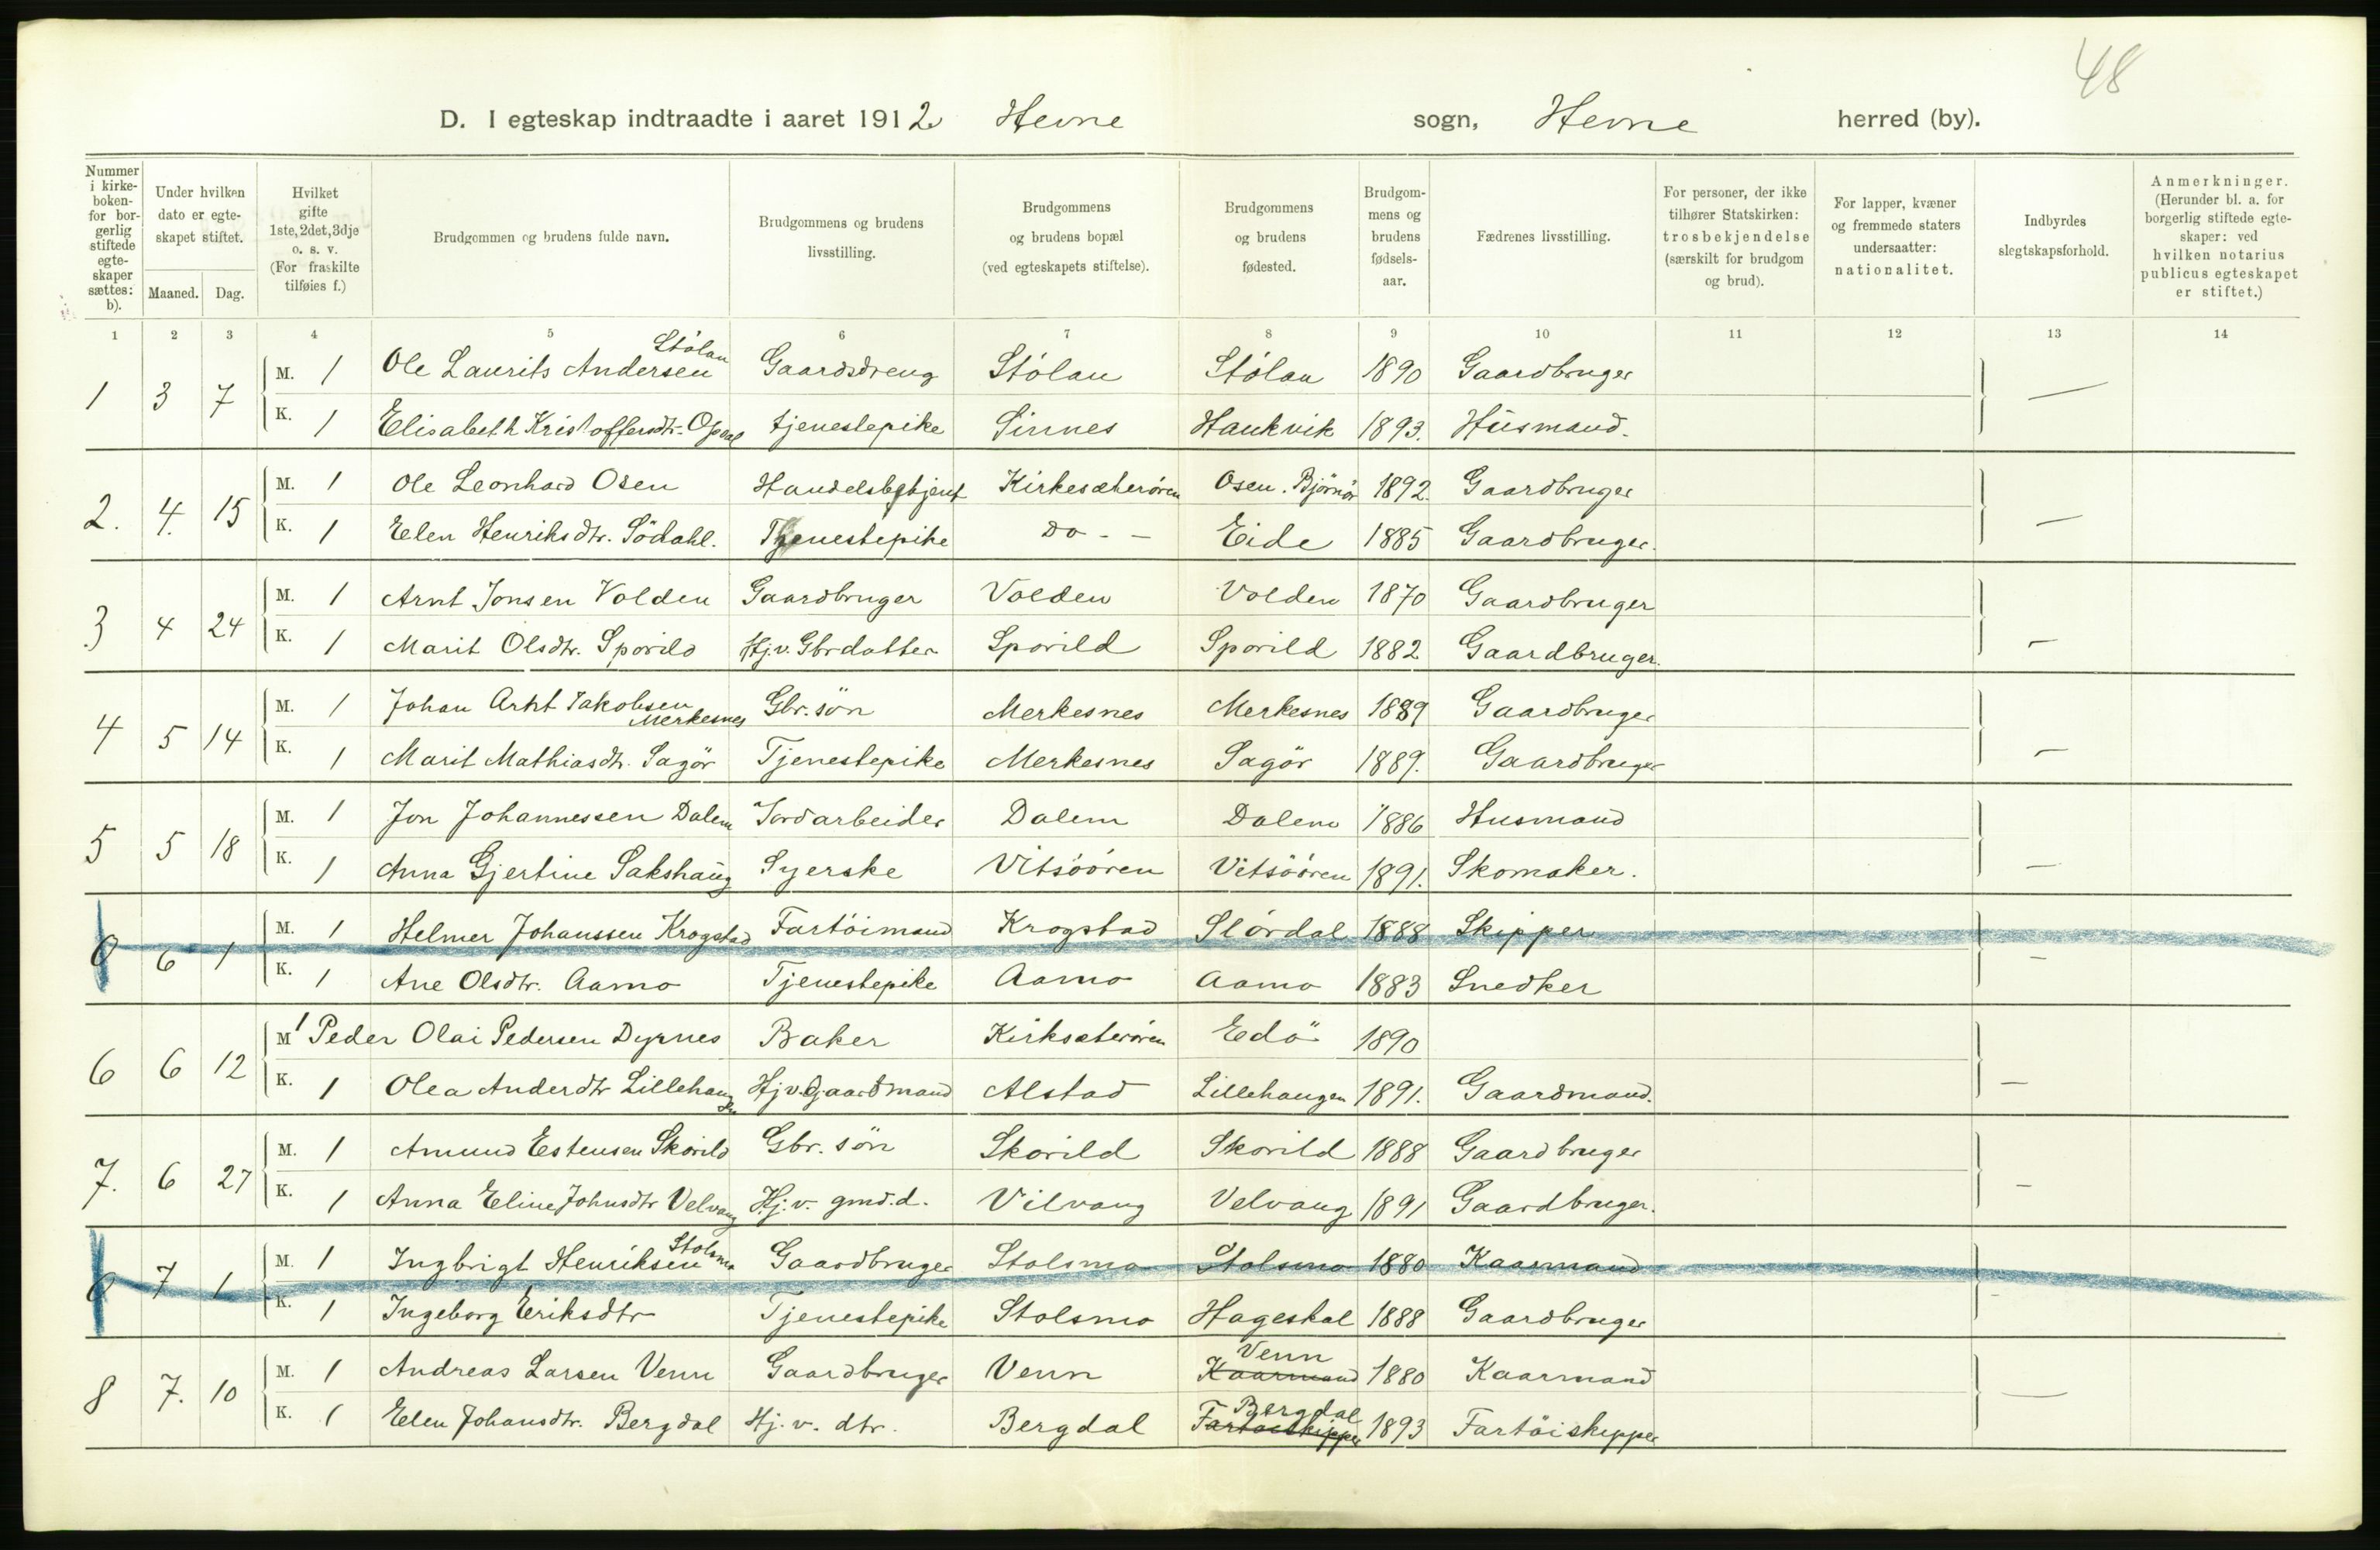 48
D. I egteskap indtraadte i aaret 1912 Hevne sogn, Hevne herred (by).
Nummer i kirkeboken- for borgerlig stiftede egteskaper sættes: b).
Under hvilken dato er egteskapet stiftet.
Maaned. Dag.
Hvilket gifte 1ste, 2det, 3dje o. s. v. (For fraskilte tilføies f.)
Brudgommen og brudens fulde navn.
Brudgommens og brudens livsstilling.
Brudgommens og brudens bopæl (ved egteskapets stiftelse).
Brudgommens og brudens fødested.
Brudgommens og brudens fødselsaar.
Fædrenes livsstilling.
For personer, der ikke tilhører Statskirken: trosbekjendelse (særskilt for brudgom og brud).
For lapper, kvæner og fremmede staters undersaatter: nationalitet.
Indbyrdes slegtskapsforhold.
Anmerkninger. (Herunder bl. a. for borgerlig stiftede egteskaper: ved hvilken notarius publicus egteskapet er stiftet.)
1 2 3 4 5 6 7 8 9 10 11 12 13 14
1 3 7 M. 1 Ole Laurits Andersen Stölan Gaardsdreng Stölan Stölan 1890 Gaardbruger —
K. 1 Elisabeth Kristoffersdtr. Opdal tjenestepike Sinnes Haukvik 1893. Husmand.
2. 4. 15 M. 1 Ole Leonhard Osen Handelsbetjent Kirkesæterören Osen. Björnör 1892. Gaardbruger —
K. 1 Elen Henriksdtr. Södahl. Tjenestepike Do - - Eide 1885 Gaardbruger.
3 4 24 M. 1 Arnt Jonsen Volden Gaardbruger Volden Volden 1870 Gaardbruger
K. 1 Marit Olsdtr. Sporild Hj.v. Gbrdatter Sporild Sporild 1882 Gaardbruger. —
4 5 14 M. 1 Johan Arnt Jakobsen Merkesnes Gbr. sön Merkesnes Merkesnes 1889 Gaardbruger
K. 1 Marit Mathiasdtr. Sagör Tjenestepike Merkesnes Sagör 1889. Gaardbruger —
5 5 18 M. 1 Jon Johannessen Dalem Jordarbeider Dalem Dalem 1886 Husmand
K. 1 Anna Gjertine Sakshaug Syerske Vitsöören Vitsöören 1891. Skomaker. —
0 6 1 M. 1 Helmer Johanssen Krogstad Fartöimand Krogstad Slördal 1888 Skipper
K. 1 Ane Olsdtr. Aamo Tjenestepike Aamo Aamo 1883 Snedker —
6 6 12 M 1 Peder Olai Pedersen Dyrnes Baker Kirksæterören Edö 1890
K. 1 Olea Andersdtr Lillehaugen Hj.v. Gaardmand Alstad Lillehaugen 1891. Gaardmand. —
7. 6 27 M. 1 Amund Estensen Skorild Gbr. sön Skorild Skorild 1888 Gaardbruger
K. 1 Anna Eline Johnsdtr Velvang Hj. v. gmd.d. Vilvang Velvang 1891 Gaardbruger. —
0 7 1 M. 1 Ingbrigt Henriksen Stolsmo Gaardbruger Stolsmo Stolsmo 1880 Kaarmand
K. 1 Ingeborg Eriksdtr Tjenestepike Stolsmo Hageskal 1888 Gaardbruger -
8 7. 10 M. 1 Andreas Larsen Venn Gaardbruger Venn Kaarmand Venn 1880 Kaarmand —
K. 1 Elen Johansdtr. Bergdal Hj. v. dtr. Bergdal Fartöiskipper Bergdal 1893 Fartöiskipper